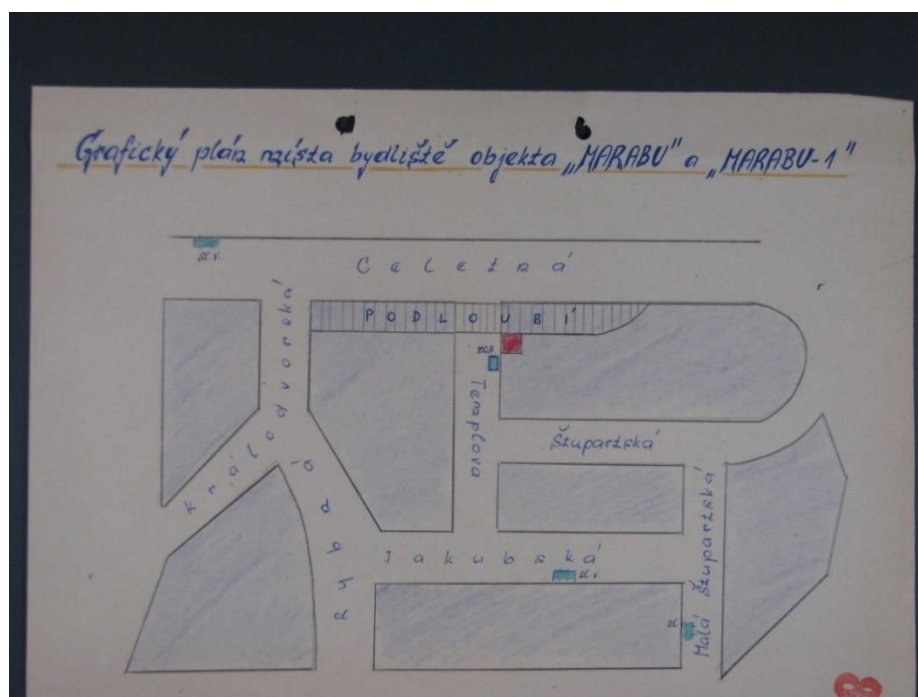 Grafický plán místa bydliště objekta „MARABU" a „MARABU-1"
sl. v.
Celetná
PODLOUBÍ
Králodvorská
Templova
Štuparská
Rybná
Jakubská
sl. v.
Malá Štuparská
8